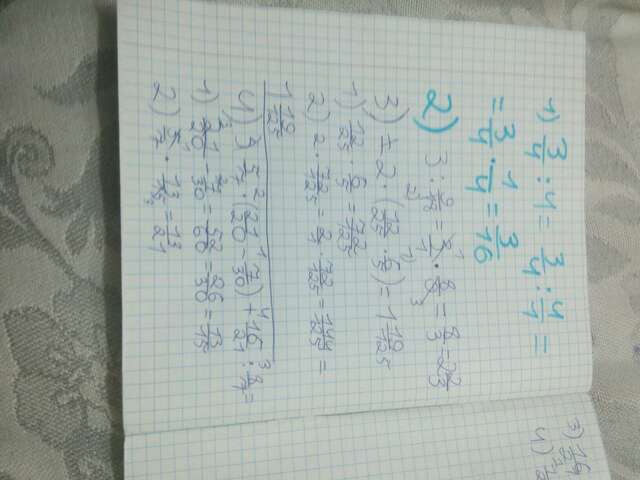 1) 3/4 : 4 = 3/4 : 4/1 =
= 3/4 · 1/4 = 3/16
2) 3 : 9/8 = 3/1 · 8/9 = 8/3 = 2 2/3
3) 2 · (12/25 · 6/5) = 1 19/125
1) 12/25 · 6/5 = 72/125
2) 2 · 72/125 = 2/1 · 72/125 = 144/125 =
1 19/125
4) 3 5/7 · (21/20 - 7/30) + 16/21 : 8/7 =
1) 21/20 - 7/30 = 52/60 = 26/30 = 13/15
2) 5/7 · 13/15 = 13/21
3) 16
4)